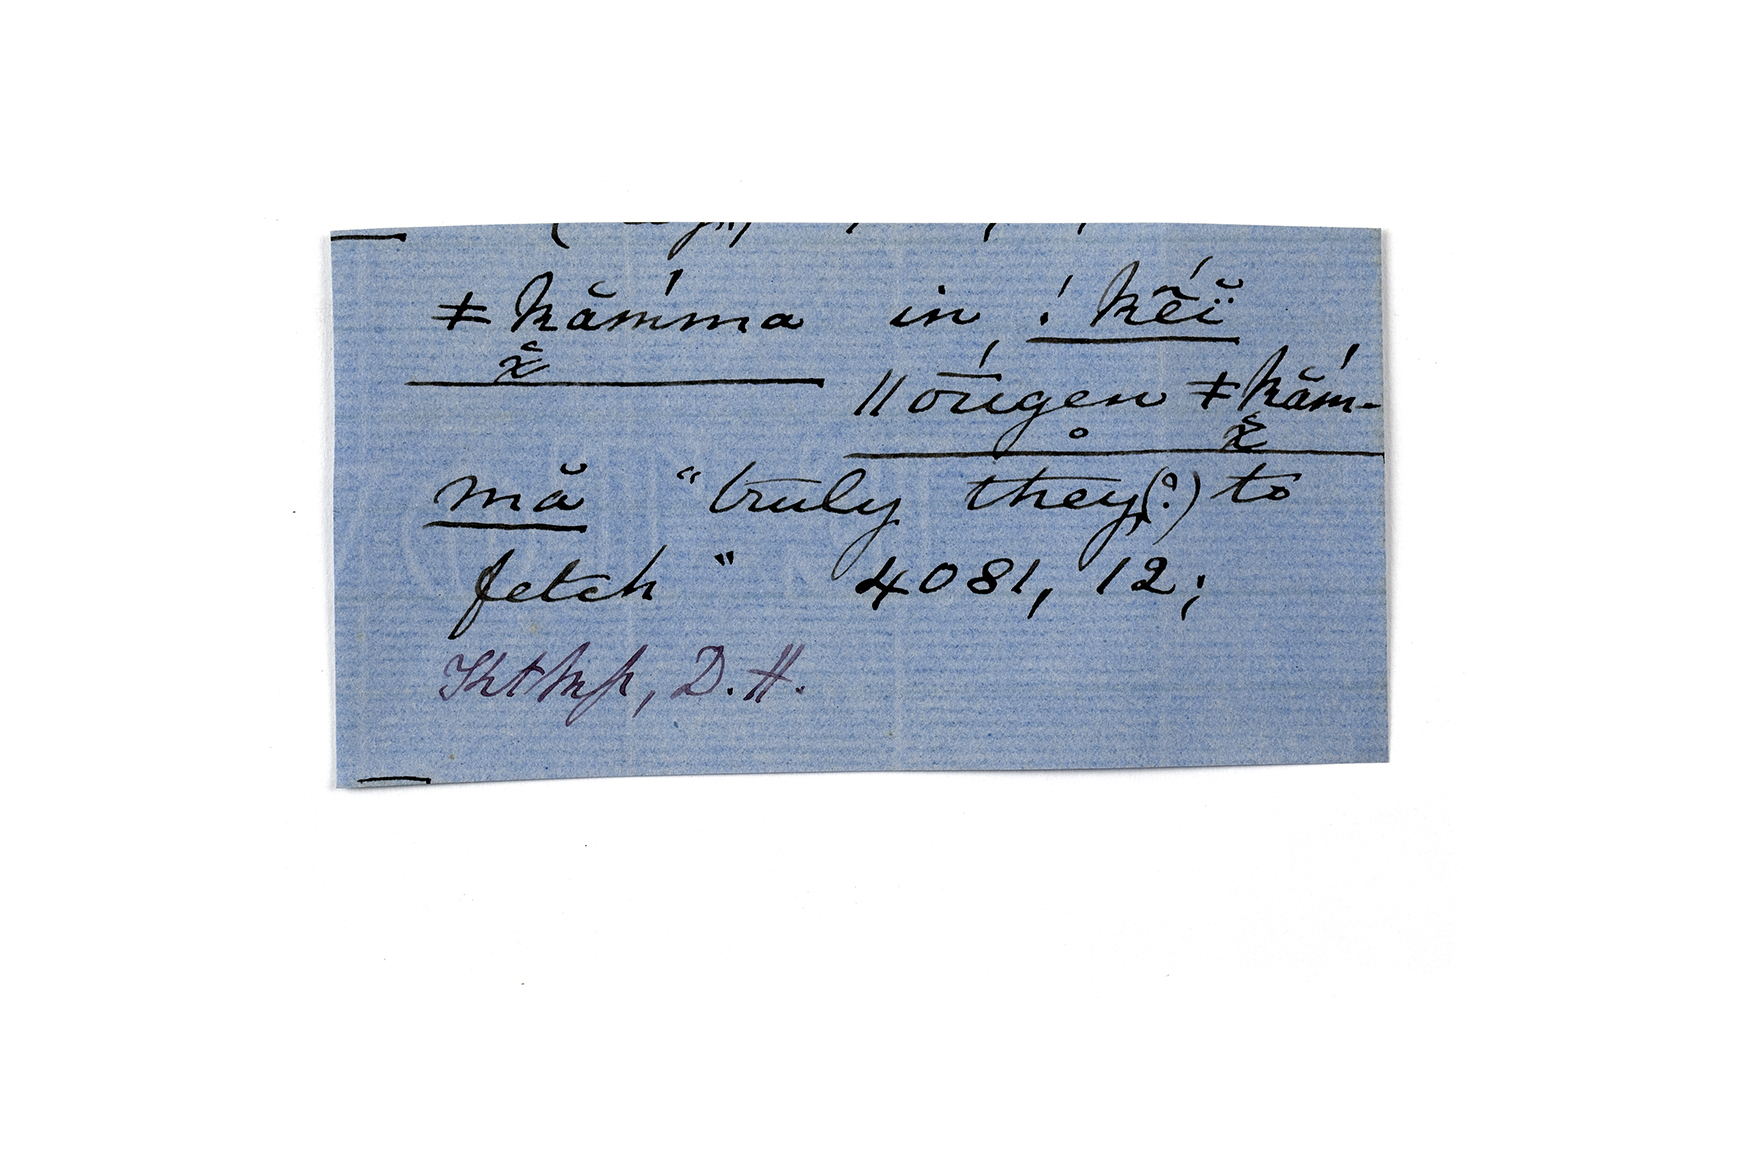 ǂkắmma in !kẽ́ĭ̈
ǁóu̅gen ǂkắm-
mă “truly they(?) to
fetch” 4081, 12;
D. H.